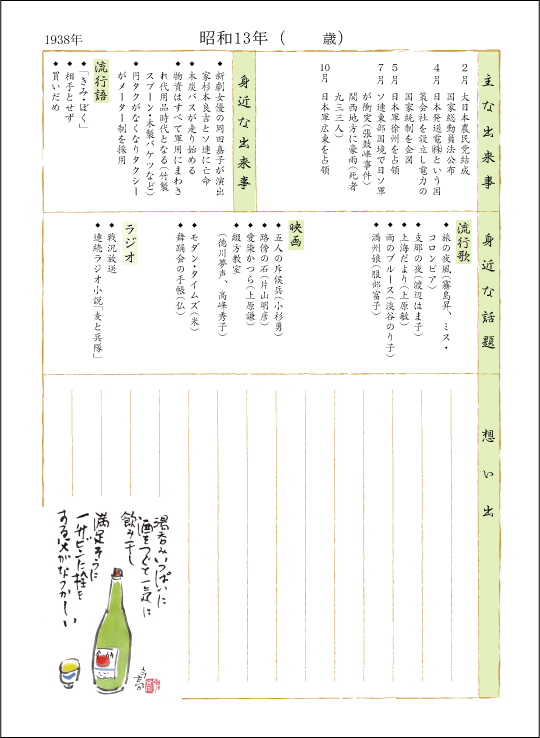 1938年
昭和13年（　　歳）
主な出来事
２月　大日本農民党結成
国家総動員法公布
４月　日本発送電㈱という国
策会社を設立し電力の
国家統制を企図
５月　日本軍徐州を占領
７月　ソ連東部国境で日ソ軍
が衝突（張鼓峰事件）
関西地方に豪雨（死者
九三三人）
10月　日本軍広東を占領
身近な出来事
◆新劇女優の岡田嘉子が演出
家杉本良吉とソ連に亡命
◆木炭バスが走り始める
◆物資はすべて軍用にまわさ
れ代用品時代となる（竹製
スプーン・木製バケツなど）
◆円タクがなくなりタクシー
がメーター制を採用
流行語
◆「きみ・ぼく」
◆相手とせず
◆買いだめ
身近な話題
流行歌
◆旅の夜風（霧島昇、ミス・
コロンビア）
◆支那の夜（渡辺はま子）
◆上海だより（上原敏）
◆雨のブルース（淡谷のり子）
◆満州娘（服部富子）
映画
◆五人の斥候兵（小杉勇）
◆路傍の石（片山明彦）
◆愛染かつら（上原謙）
◆綴方教室
（徳川夢声、高峰秀子）
◆モダン・タイムズ（米）
◆舞踊会の手帳（仏）
ラジオ
◆戦況放送
◆連続ラジオ小説「麦と兵隊」
想い出
湯呑みいっぱいに
酒をついで一気に
飲み干し
満足そうに
一升ビンに栓を
する父がなつかしい